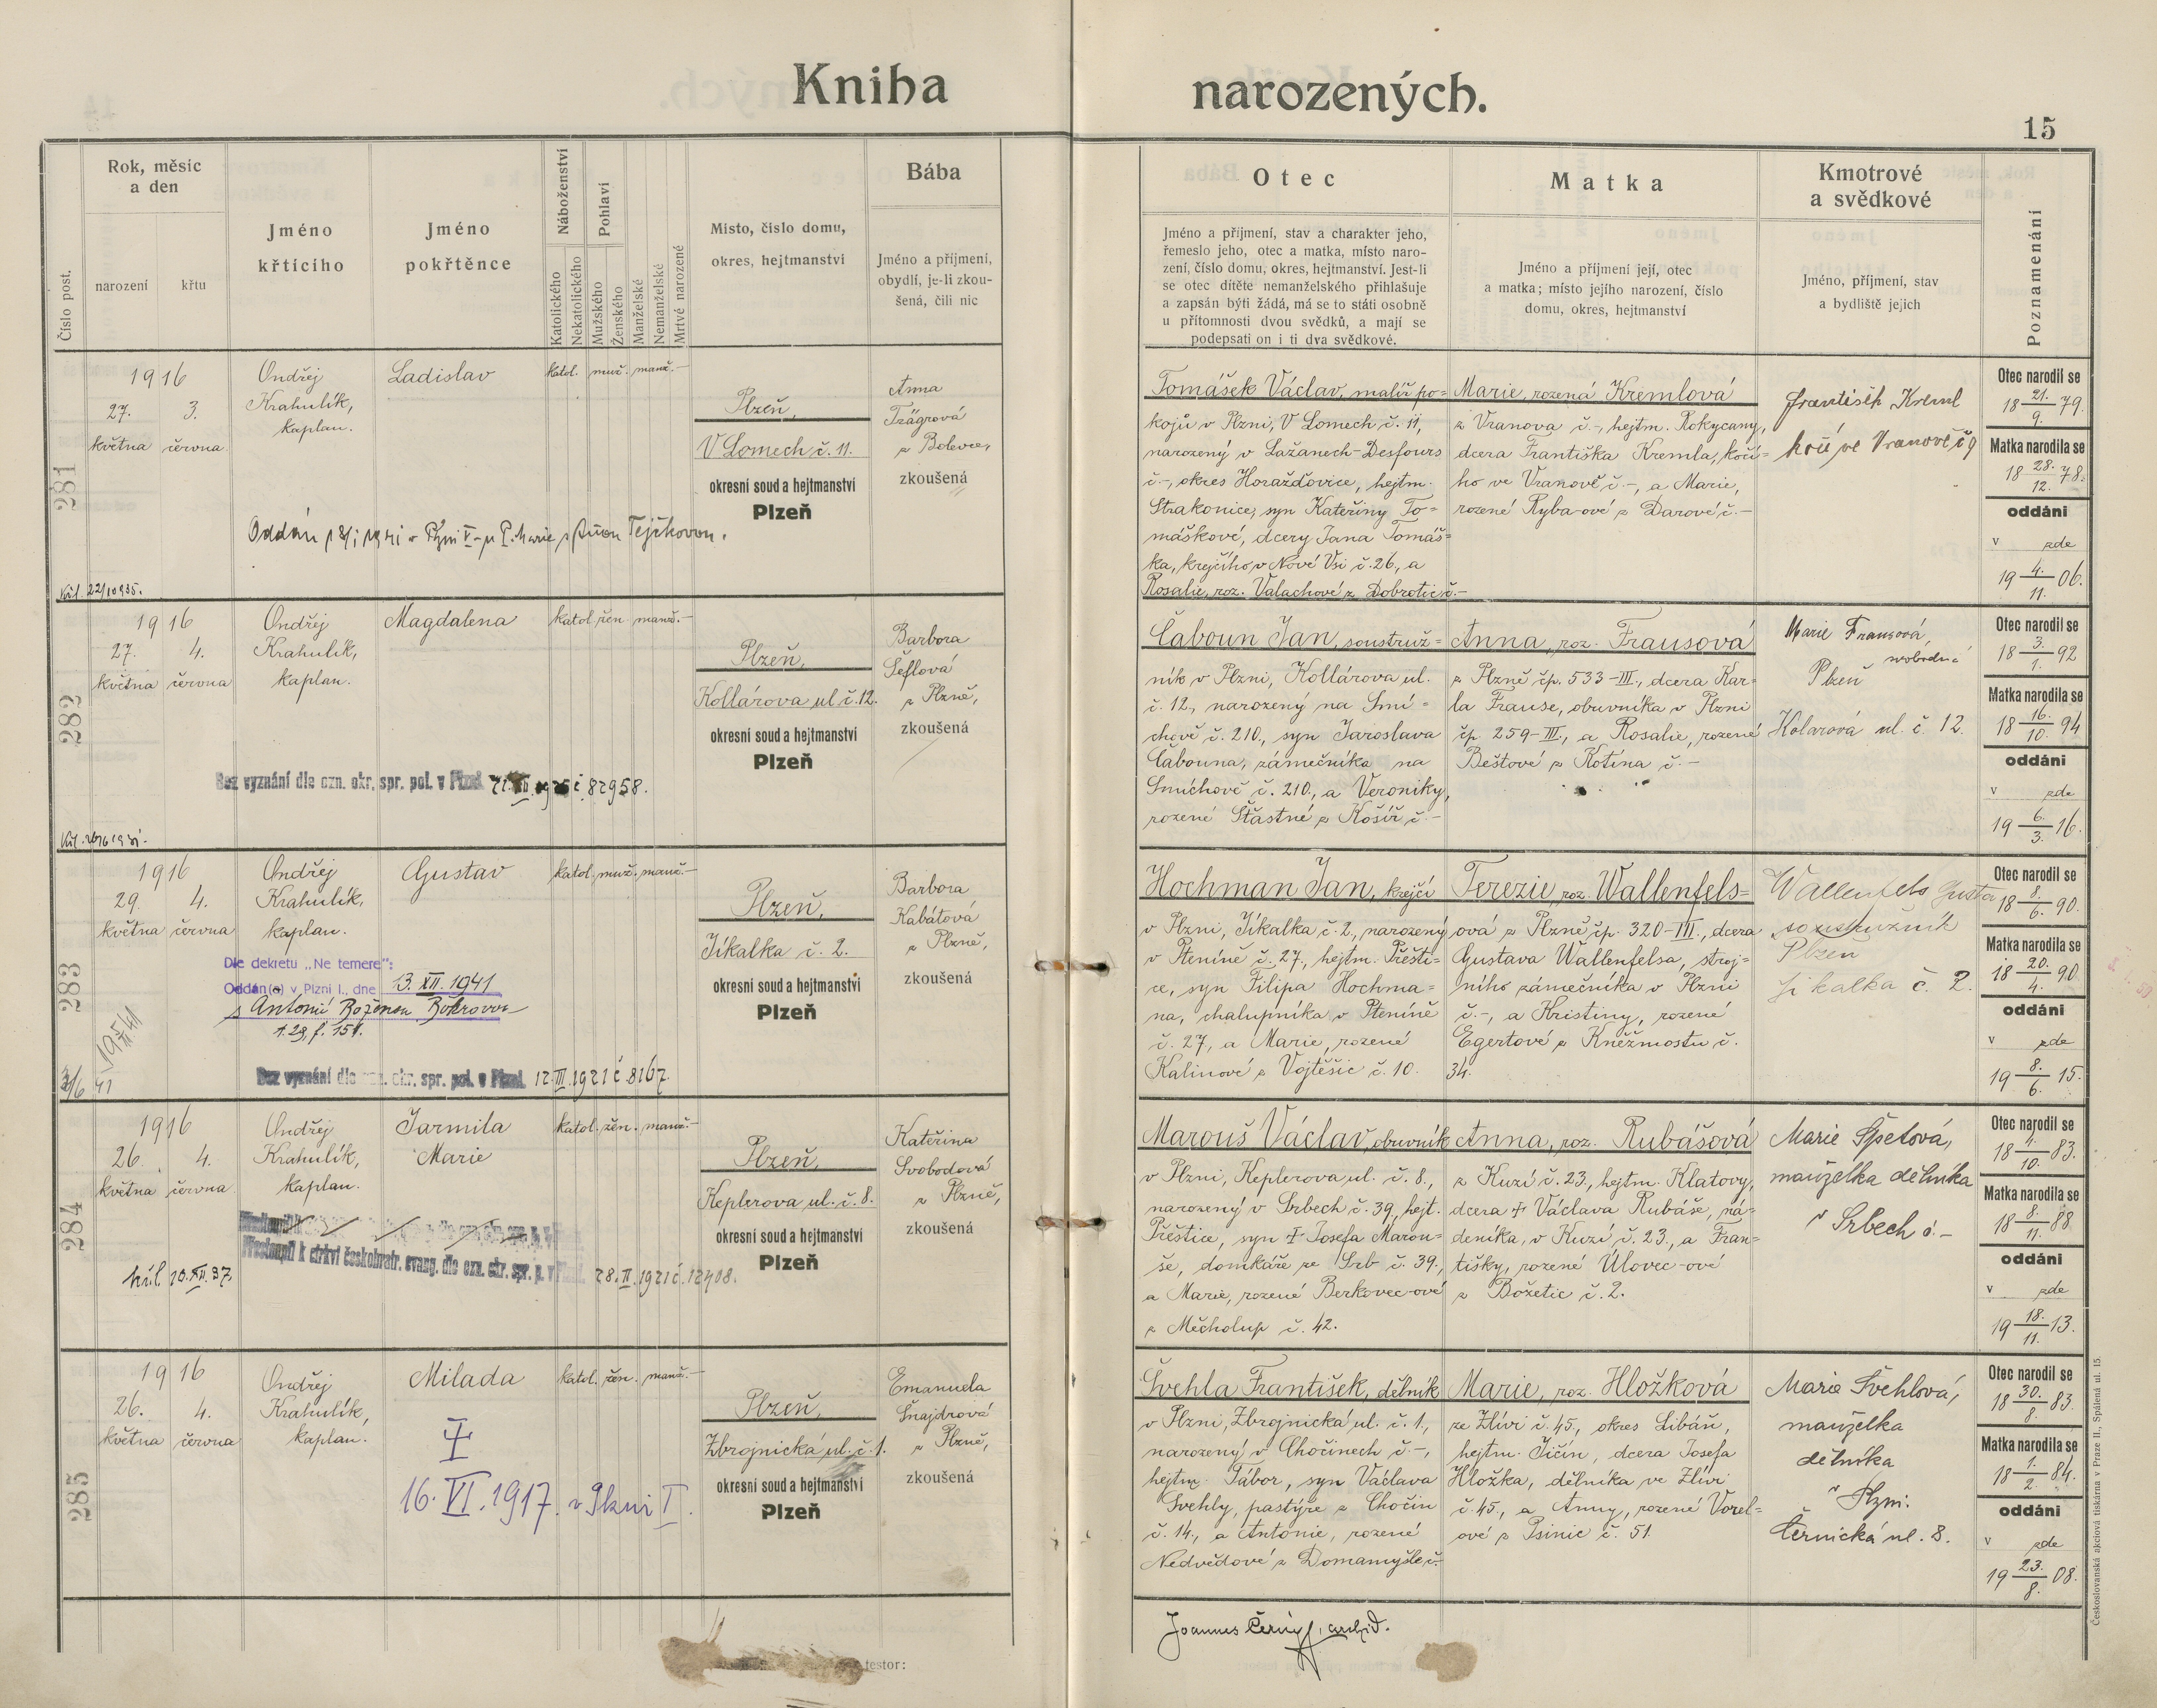 Kniha narozených.
15
Číslo post.
Rok, měsíc
a den
narození
křtu
Jméno
křtícího
Jméno
pokřtěnce
Náboženství
Katolického
Nekatolického
Pohlaví
Mužského
Ženského
Manželské
Nemanželské
Mrtvě narozené
Místo, číslo domu,
okres, hejtmanství
Bába
Jméno a příjmení,
obydlí, je-li zkou-
šená, čili nic
Otec
Jméno a příjmení, stav a charakter jeho,
řemeslo jeho, otec a matka, místo naro-
zení, číslo domu, okres, hejtmanství. Jest-li
se otec dítěte nemanželského přihlašuje
a zapsán býti žádá, má se to státi osobně
u přítomnosti dvou svědků, a mají se
podepsati on i ti dva svědkové.
Matka
Jméno a příjmení její, otec
a matka; místo jejího narození, číslo
domu, okres, hejtmanství
Kmotrové
a svědkové
Jméno, příjmení, stav
a bydliště jejich
Poznamenání
281
1916
27. 3.
května června
Ondřej
Krahulík,
kaplan.
Ladislav
katol. muž. manž.-
Plzeň,
V Lomech č. 11.
okresní soud a hejtmanství
Plzeň
Anna
Trägrová
z Bolevce,
zkoušená
Oddán 18/I 1941 v Plzni V - u P. Marie s Annou Tejčkovou.
Křl. 22/10 935.
Tomášek Václav, malíř po-
kojů v Plzni, V Lomech č. 11,
narozený v Lažanech-Desfours
č.-, okres Horažďovice, hejtm.
Strakonice, syn Kateřiny To-
máškové, dcery Jana Tomáš-
ka, krejčího v Nové Vsi č. 26, a
Rosalie, roz. Valachové z Dobrotic č.-
Marie, rozená Kremlová
z Vranova č.-, hejtm. Rokycany,
dcera Františka Kremla, kočí-
ho ve Vranově č.-, a Marie,
rozené Ryba-ové z Darové č.-
František Kreml
kočí ve Vranově č 9
Otec narodil se
18 21./9. 79.
Matka narodila se
18 28./12. 78.
oddáni
v zde
19 4./11. 06.
282
1916
27. 4.
května června
Ondřej
Krahulík,
kaplan.
Magdalena
katol. žen. manž.-
Plzeň,
Kollárova ul č. 12.
okresní soud a hejtmanství
Plzeň
Barbora
Šeflová
z Plzně,
zkoušená
Bez vyznání dle ozn. okr. spr. pol. v Plzni č 82958.
Čaboun Jan, soustruž-
ník v Plzni, Kollárova ul.
č. 12, narozený na Smí-
chově č. 210., syn Jaroslava
Čabouna, zámečníka na
Smíchově č. 210., a Veroniky,
rozené Šťastné z Košíř č.-
Anna, roz. Frausová
z Plzně čp. 533-III., dcera Kar-
la Frause, obuvníka v Plzni
čp. 259-III., a Rosalie, rozené
Beštové z Kotína č.-
Marie Frausová,
svobodná
Plzeň
Kolarová ul. č. 12.
Otec narodil se
18 3./1. 92
Matka narodila se
18 16./10. 94
oddáni
v zde
19 6./3. 16.
283
1916
29. 4.
května června
Ondřej
Krahulík,
kaplan.
Gustav
katol. muž. manž.-
Plzeň,
Jikalka č. 2.
okresní soud a hejtmanství
Plzeň
Barbora
Kabátová
z Plzně,
zkoušená
Dle dekretu „Ne temere":
Oddán(a) v Plzni I., dne 13. XII. 1941
s Antonií Boženou
1. 29, f. 151.
Bez vyznání dle ozn. okr. spr. pol. v Plzni 12.III.1921 č. 8167
Hochman Jan, krejčí
v Plzni, Jikalka č. 2., narozený
v Ptenině č. 27., hejtm. Přešti-
ce, syn Filipa Hochma-
na, chalupníka v Ptenině
č. 27, a Marie, rozené
Kalinové z Vojtěšic č. 10.
Terezie, roz. Wallenfels-
ová z Plzně čp. 320-III., dcera
Gustava Wallenfelsa, stroj-
ního zámečníka v Plzni
č.-, a Kristiny, rozené
Egertové z Kněžmostu č.
34.
Wallenfels Gusta
soustružník
Plzeň
Jikalka č. 2.
Otec narodil se
18 8./6. 90.
Matka narodila se
18 20./4. 90
oddáni
v zde
19 8./6. 15.
284
1916
26. 4.
května června
Ondřej
Krahulík,
kaplan.
Jarmila
Marie
katol. žen. manž.-
Plzeň,
Keplerova ul. č. 8.
okresní soud a hejtmanství
Plzeň
Kateřina
Svobodová
z Plzně,
zkoušená
Přestoupil k církvi českobratr. evang. dle ozn. okr. spr. p. v Plzni 28.II.1921 č. 12408.
křl. 10.XII.37
Marouš Václav, obuvník
v Plzni, Keplerova ul. č. 8.,
narozený v Srbech č. 39, hejt.
Přeštice, syn † Josefa Marou-
še, domkáře ze Srb č. 39.,
a Marie, rozené Berkovec-ové
z Měcholup č. 42.
Anna, roz. Rubášová
z Kuzí č. 23., hejtm. Klatovy,
dcera † Václava Rubáše, ná-
deníka, v Kuzí č. 23., a Fran-
tišky, rozené Úlovec-ové
z Božetic č. 2.
Marie Špetová,
manželka dělníka
v Srbech č.-
Otec narodil se
18 4./10. 83.
Matka narodila se
18 8./11. 88.
oddáni
v zde
19 18./11. 13.
285
1916
26. 4.
května června
Ondřej
Krahulík,
kaplan.
Milada
katol. žen. manž.-
Plzeň,
Zbrojnická ul. č. 1.
okresní soud a hejtmanství
Plzeň
Emanuela
Šnajdrová
z Plzně,
zkoušená
†
16. VI. 1917. v Plzni I.
Švehla František, dělník
v Plzni, Zbrojnická ul. č. 1,
narozený v Chočinech č.-,
hejtm. Tábor, syn Václava
Švehly, pastýře z Chočin
č. 14., a Antonie, rozené
Nedvědové z Domamyšle č.-
Marie, roz. Hložková
ze Zlivi č. 45, okres Libáň,
hejtm. Jičín, dcera Josefa
Hložka, dělníka ve Zlivi
č. 45, a Anny, rozené Vorel-
ové z Psinic č. 51.
Marie Švehlová,
manželka
dělníka
v Plzni.
Černická ul. 8.
Otec narodil se
18 30./8. 83.
Matka narodila se
18 1./2. 84.
oddáni
v zde
19 23./8. 08.
Joannes Černý, archid.
testor:
Českoslovanská akciová tiskárna v Praze II., Spálená ul. 15.